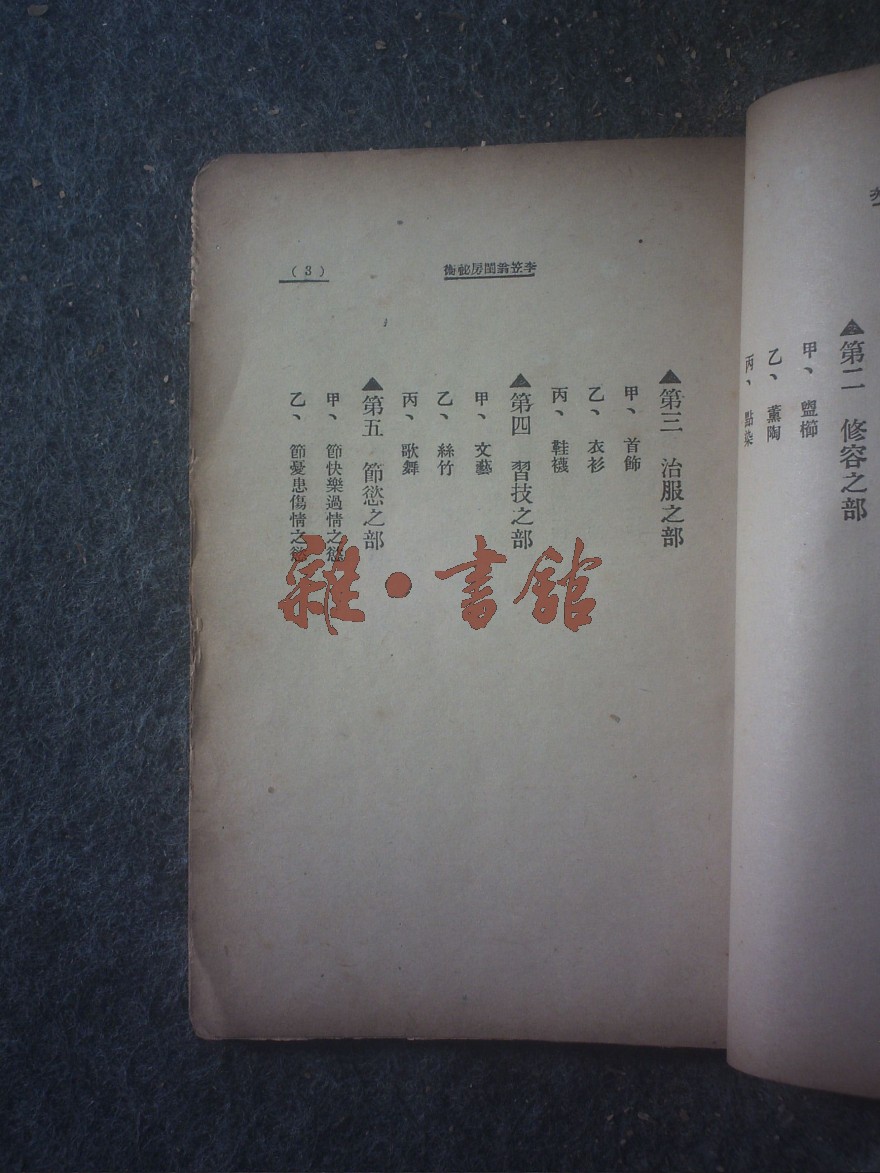 ▲第二 修容之部
甲、盥櫛
乙、薰陶
丙、點染
李笠翁閨房祕術
▲第三 治服之部
甲、首飾
乙、衣衫
丙、鞋襪
▲第四 習技之部
甲、文藝
乙、絲竹
丙、歌舞
▲第五 節慾之部
甲、節快樂過情之慾
乙、節憂患傷情之慾
(3)
雜·書館